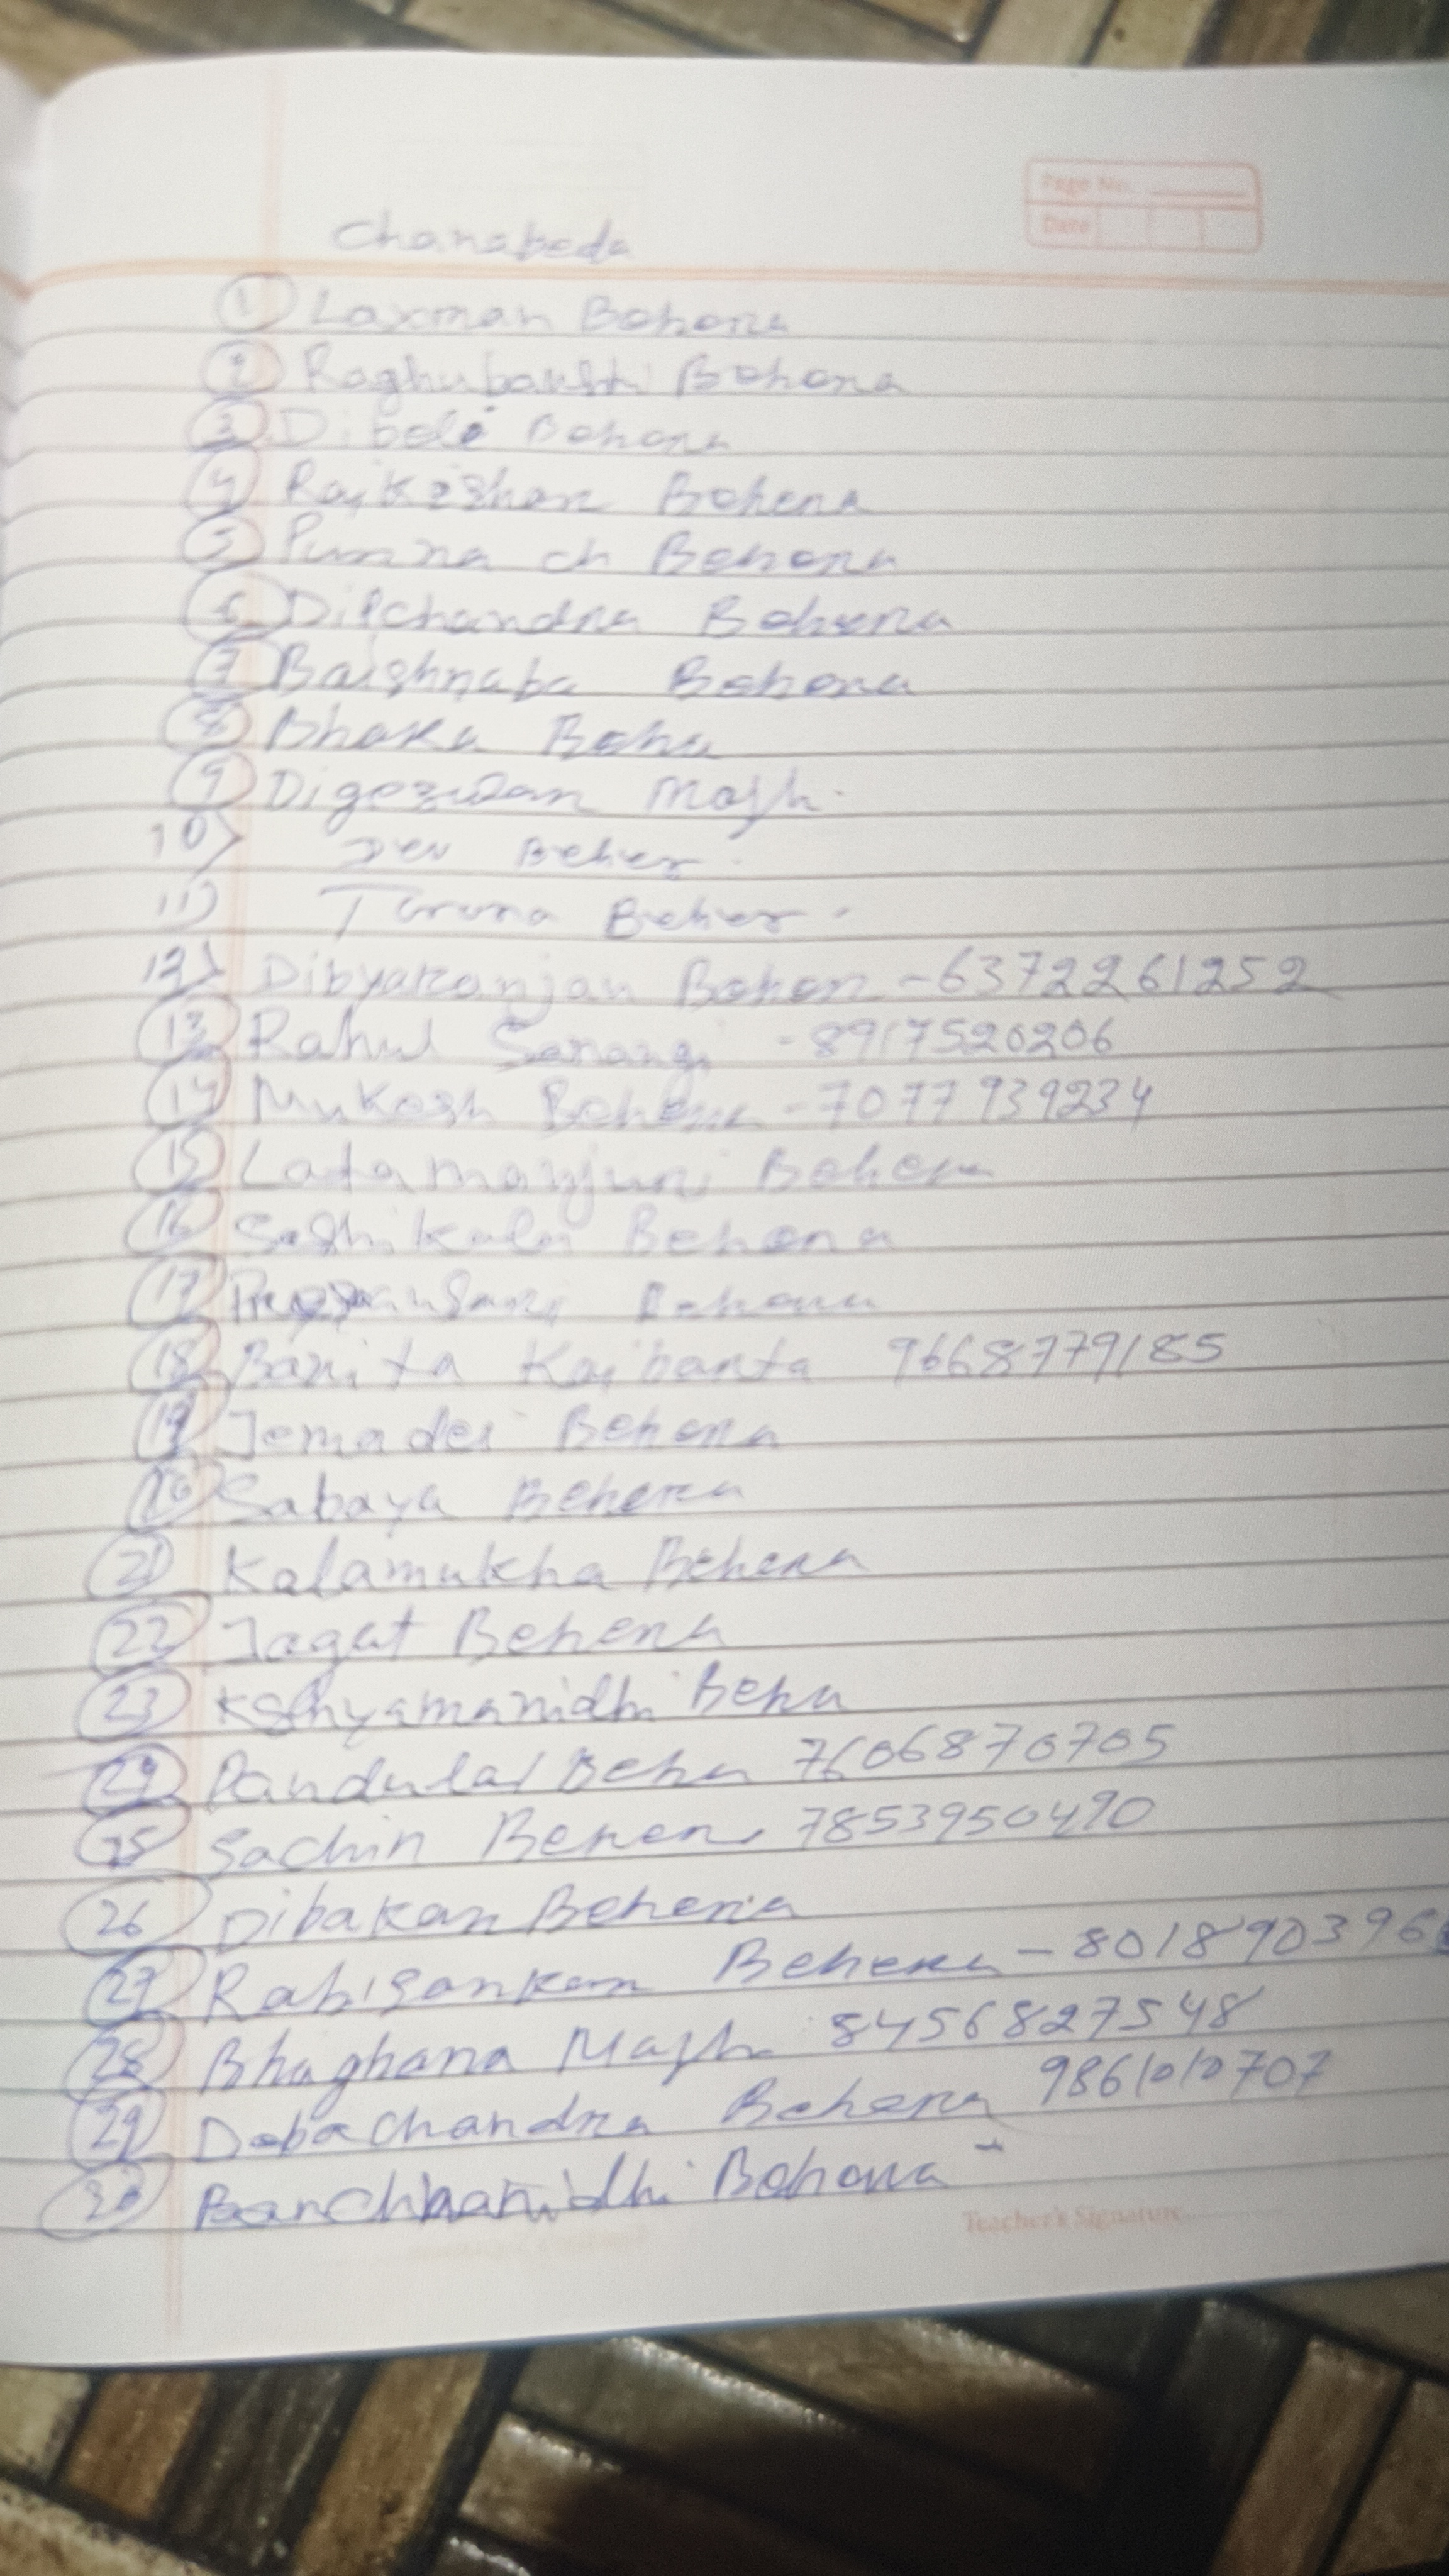 Page No.
Date
Chanabeda
1 Laxman Behera
2 Raghubanshi Behera
3 Behera
4 Rajkishor Behera
5 Purna ch Behera
6 Dilchandra Behera
7 Baishnaba Behera
8 Bhaka Behu
9 Majhi
10) Dev Beher
11) Taruna Beher
12) Dibyaranjan Beher - 6372261252
13 Rahul Sarangi - 8917520206
14 Mukesh Behera - 7077939234
15 Latamanjuri Behera
16 Sashikala Behera
17 Behera
18 Banita Kaibarta 9668779185
19 Jemadei Behera
20 Sabaya Behera
21 Kalamukha Behera
22 Jagat Behera
23 Kshyamanidhi Behu
24 Pandulal Behu 7606870705
25 Sachin Behera 7853950490
26 Dibakar Behera
27 Rabisankar Behera - 801890396
28 Bhaghana Majhi 8456827548
29 Debachandra Behera 9861010707
30 Panchhanidhi Behera -
Teacher's Signature